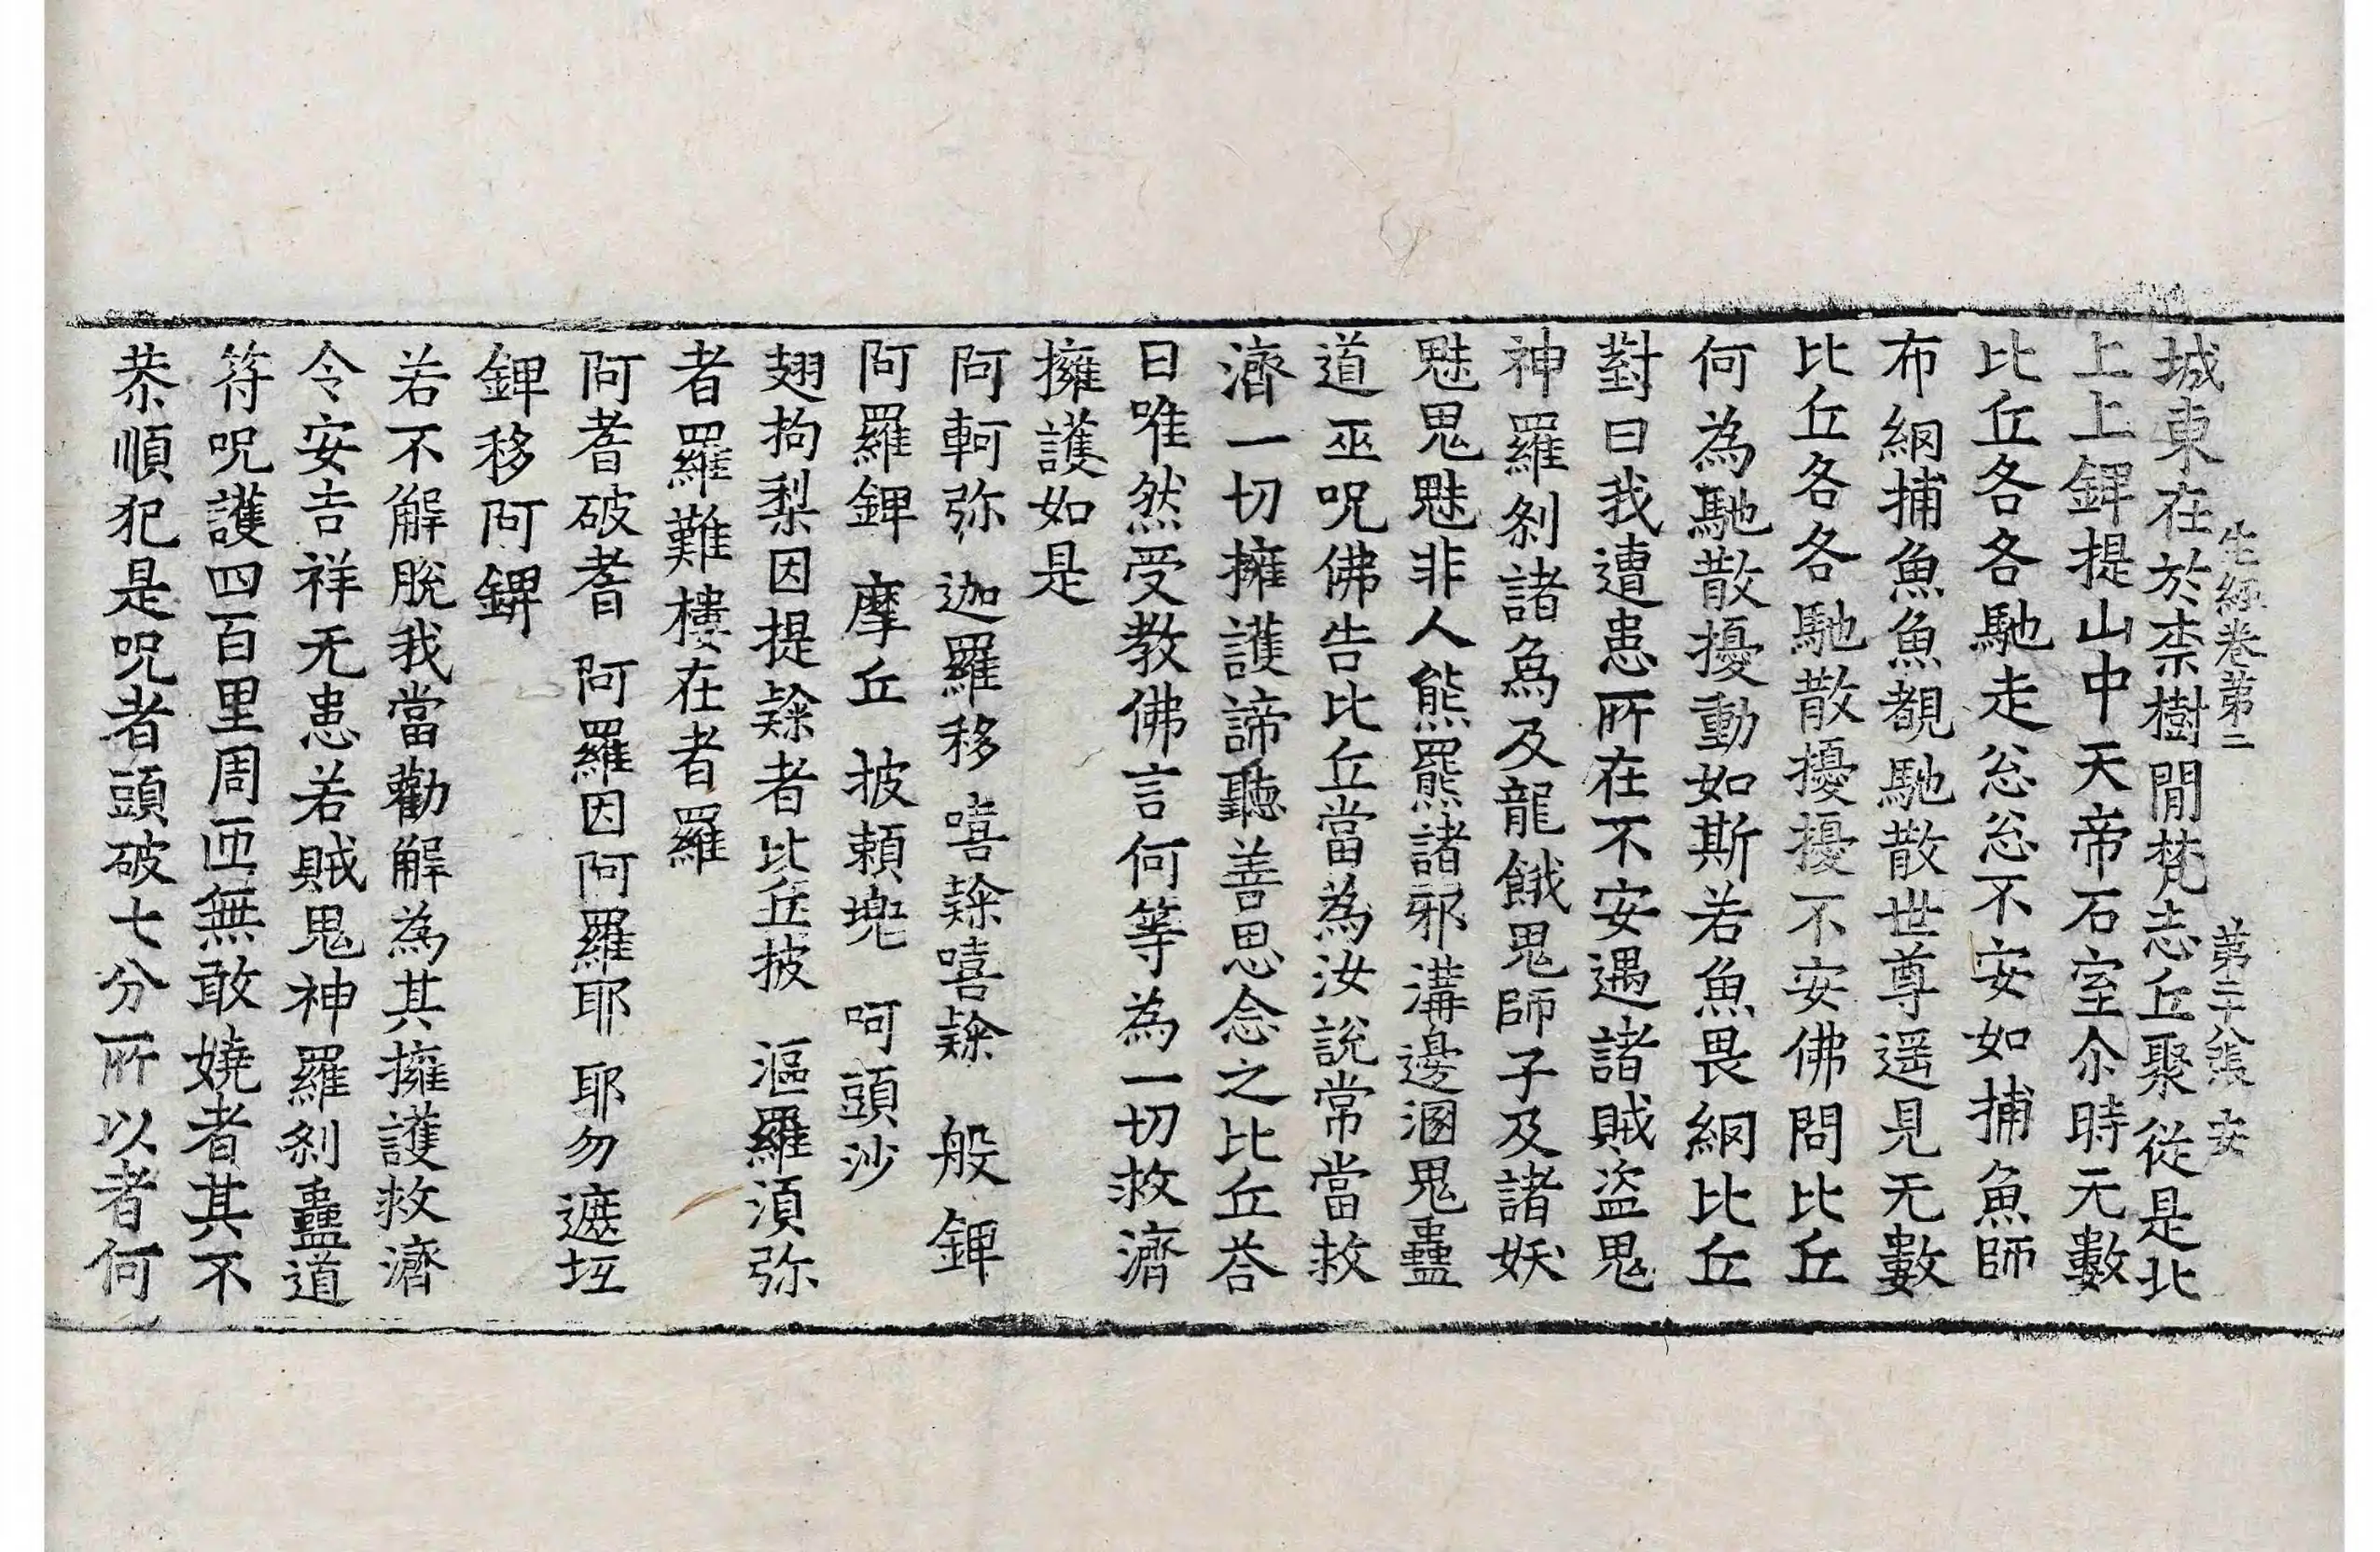 生經卷第二　第二十八張　安
城東在於柰樹閒梵志丘聚從是北
上上鉀提山中天帝石室尒時无數
比丘各各馳走忩忩不安如捕魚師
布網捕魚魚覩馳散世尊遥見无數
比丘各各馳散擾擾不安佛問比丘
何為馳散擾動如斯若魚畏網比丘
對曰我遭患所在不安遇諸賊盗鬼
神羅剎諸為及龍餓鬼師子及諸妖
魅鬼魅非人熊羆諸邪溝邊溷鬼蠱
道巫呪佛告比丘當為汝說常當救
濟一切擁護諦聽善思念之比丘荅
曰唯然受教佛言何等為一切救濟
擁護如是
阿軻弥　迦羅移　嘻隸嘻隸　般鉀
阿羅鉀　摩丘　披賴兠　呵頭沙
翅拘梨因提隸者比丘披　漚羅湏弥
者羅難樓在者羅
阿耆破耆　阿羅因阿羅耶　耶勿遮坘
鉀移阿鉀
若不解脫我當勸解為其擁護救濟
令安吉祥无患若賊鬼神羅剎蠱道
符呪護四百里周匝無敢嬈者其不
恭順犯是呪者頭破七分所以者何